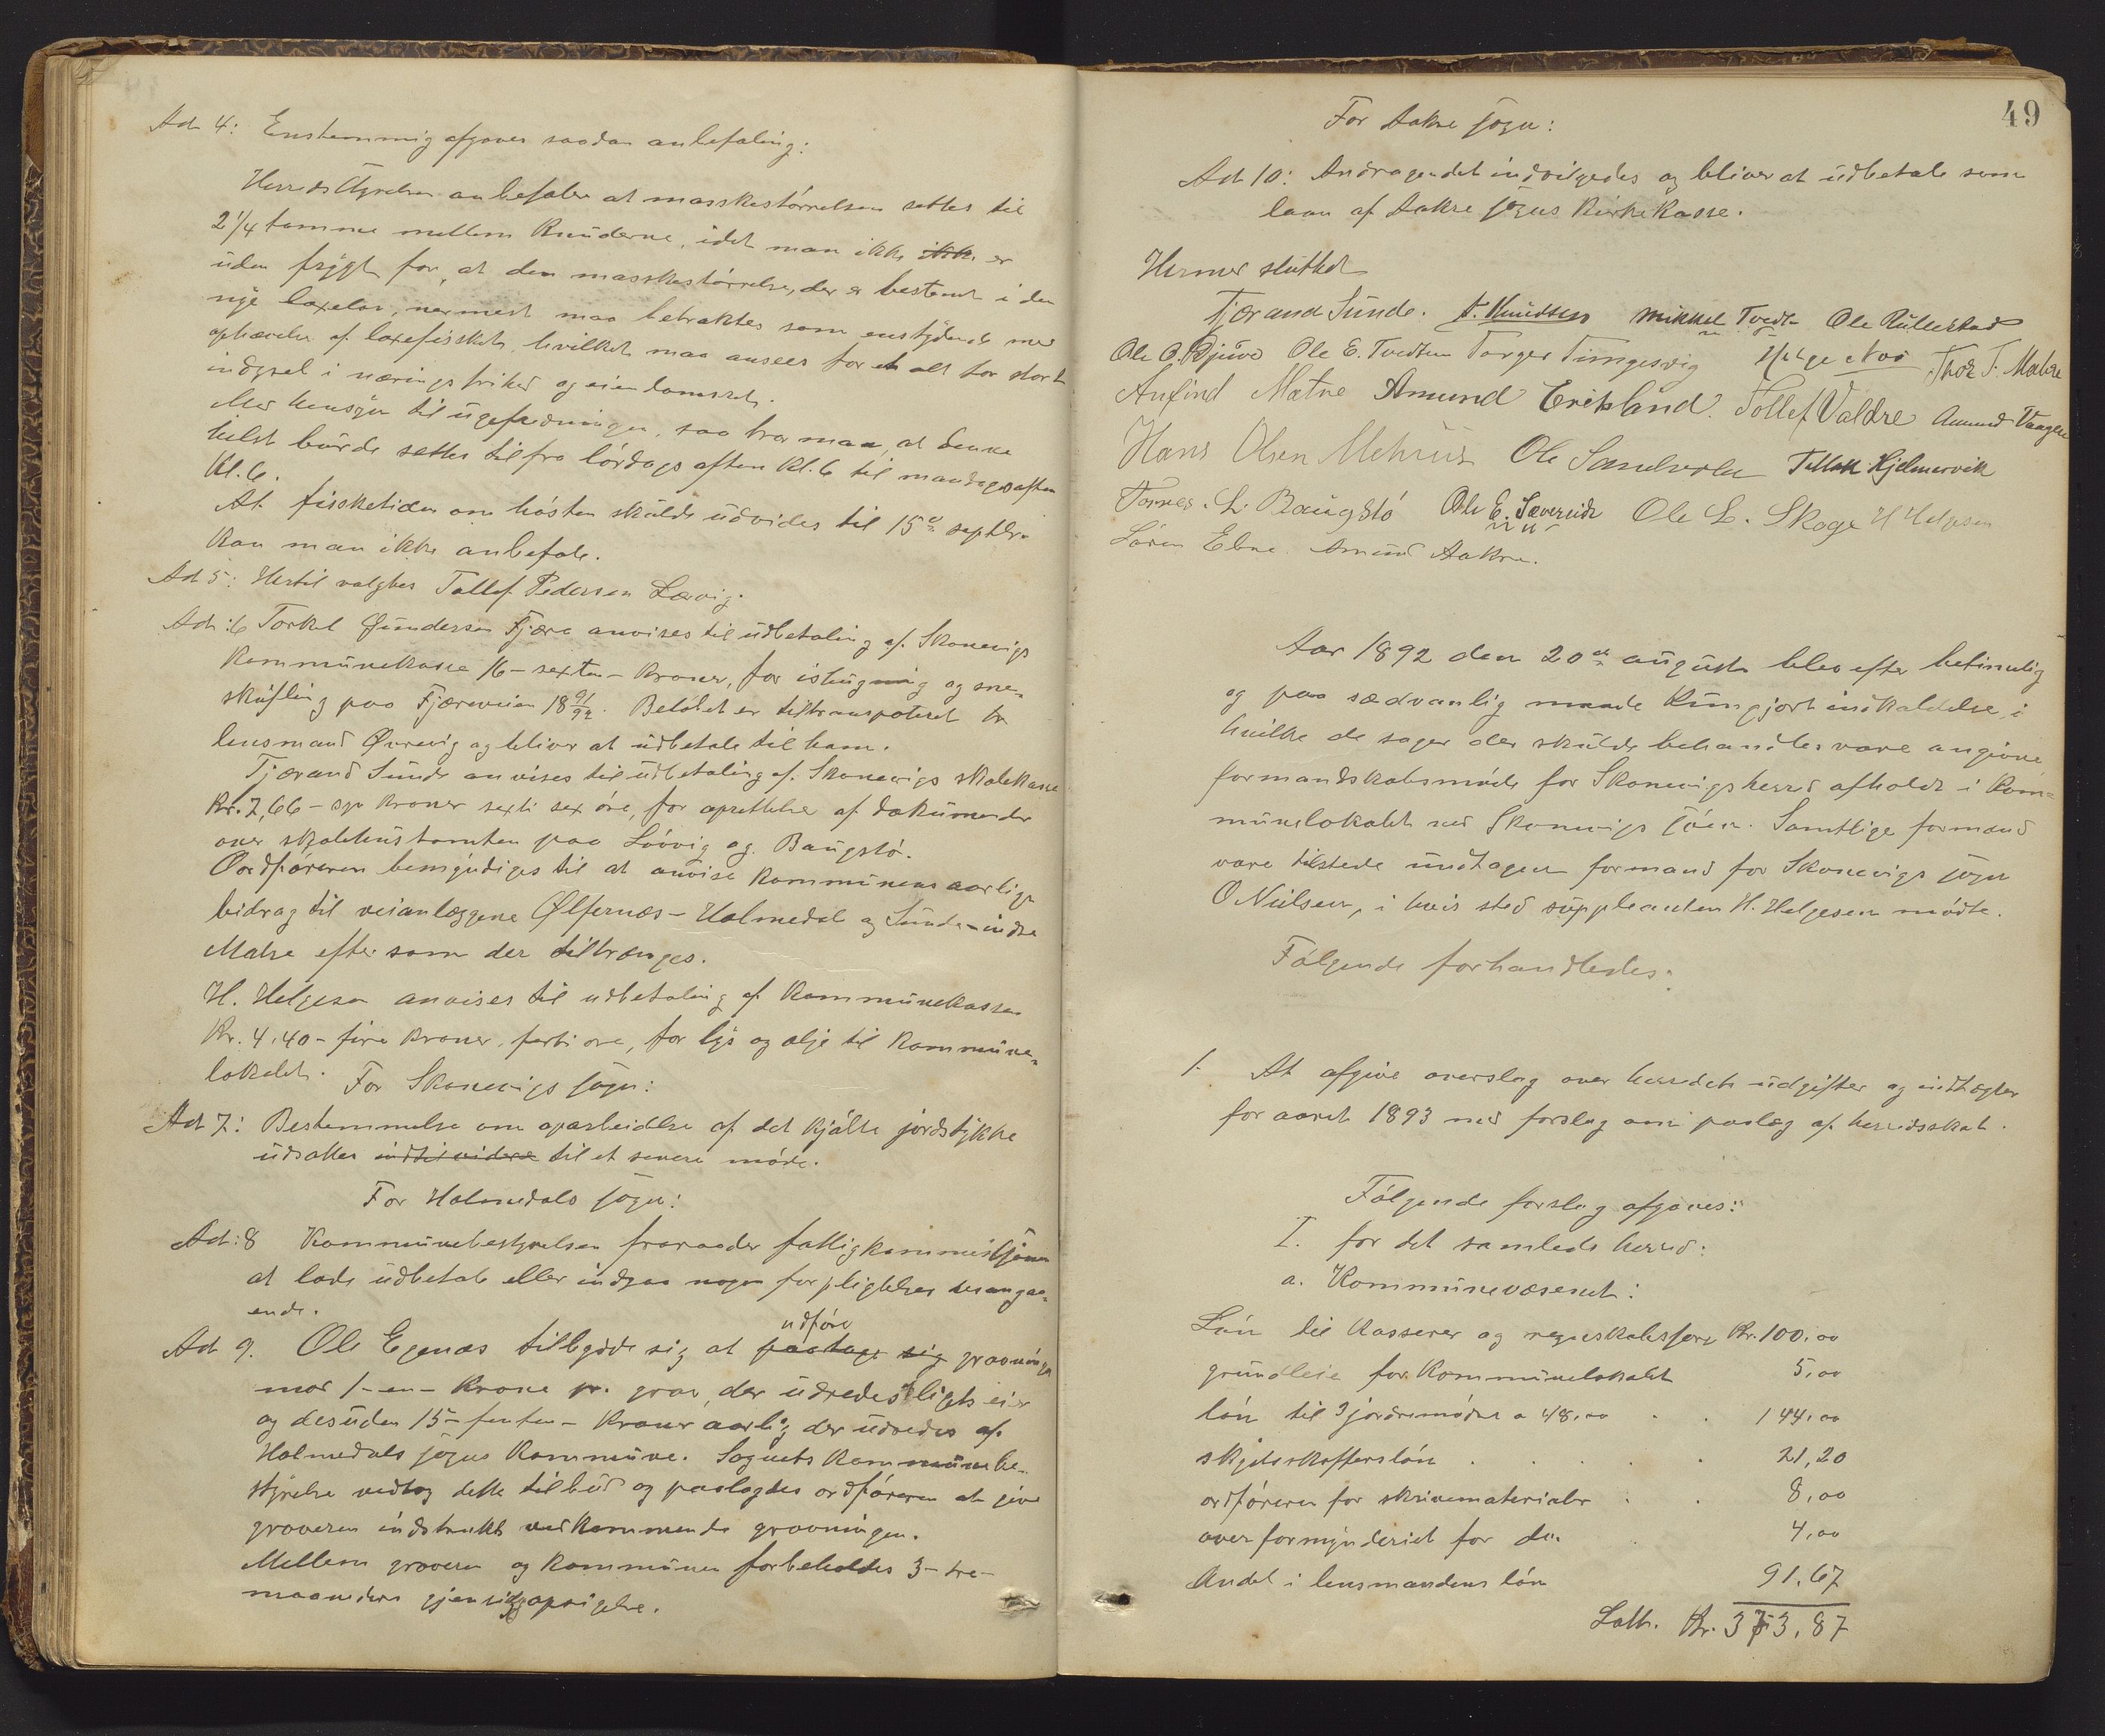 Ad 4: Enstemmig afgaves saadan anbefaling:
Herredsstyrelsen anbefaler at maskestørrelsen settes til
2 1/4 tomme mellem Knuderne, idet man ikke ikke er
uden frygt for, at den maskestørrelse, der er bestemt i den
nye laxelov, nermest maa betraktes som enstydende med
ophævelse af laxefisket, hvilket maa ansees for et alt for stort
indgreb i næringsfrihed og eiendomsret.
Med hensyn til ugefredningen, saa tror man, at denne
helst burde settes til fra lørdags aften Kl. 6 til mandags aften
Kl. 6.
At fisketiden om høsten skulde udvides til 15de septbr.
kan man ikke anbefale.
Ad 5: Hertil valgtes Tollef Pedersen Lervig.
Ad: 6 Torkel Gundersen Fjære anvises til udbetaling af Skonevigs
Kommunekasse 16 - sexten - Kroner, for ishugning og sne-
skufling paa Fjæreveien 18 91/92. Beløbet er tiltransporteret
lensmand Øvrevig og bliver at udbetale til ham.
Tjærand Sunde anvises til udbetaling af Skonevigs skolekasse
Kr. 7,66 - syv Kroner sexti sex øre, for oprettelse af dokumenter
over skolehustomten paa Løvvig og Baugstø.
Ordføreren bemyndiges til at anvise Kommunens aarlige
bidrag til veianlæggene Ølfernæs - Holmedal og Sunde - indre
Matre efter som der tiltrænges.
H. Helgesen anvises til udbetaling af Kommunekassen
Kr. 4,40 - fire Kroner, forti øre, for lys og olje til Kommune-
lokalet.
For Skonevigs sogn:
Ad 7: Bestemmelse om oparbeidelse af det kjøbte jordstykke
udsattes indtil videre til et senere møde.
For Holmedals sogn:
Ad: 8 Kommunebestyrelsen fraraader fattigkommissionen
at lade udbetale eller indgaa nogen forpligtelser desangaa-
ende.
udføre
Ad 9. Ole Egenæs tilbyder sig at paatage sig gravningen
mod 1 - en - Krone pr. grav, der udredes af ligets eier
og desuden 15 - femten - Kroner aarlig, der udredes af
Holmedals sogns Kommune. Sognets Kommunebe-
styrelse vedtog dette tilbud og paalagdes ordføreren at give
graveren indstruks vedkommende gravningen.
Mellem graveren og Kommunen forbeholdes 3 - tre -
maaneders gjensidig opsigelse.
49
For Aakre sogn:
Ad 10: Andragendet indvilgedes og bliver at udbetale som
laan af Aakre sogns Kirkekasse.
Hermed sluttet
Tjærand Sunde. A. Knudsen Mikkel Tvedt Ole Rullestad
Ole O. Djuve Ole E. Tvedten Torger Tungesvig Helge Næs Thor T. Matre
Anfind Matre Amund Eriksland. Tollef Valdre Amund Vaagen
Hans Olsen Mehus Ole Sandvole Tollak Hjelmervik
Tarres. L. Baugstø Ole E. Sævereide Ole L. Skoge H Helgesen
Sören Ebne. Amund Aakre.
Aar 1892 den 20de august blev efter betimelig
og paa sædvanlig maade kungjort indkaldelse, i
hvilke de sager der skulde behandles vare angivne
formandskabsmøde for Skonevigs herred afholdt i Kom-
munelokalet ved Skonevigs søen. Samtlige formænd
vare tilstede undtagen formand for Skonevigs sogn
O Nielsen, i hvis sted suppleanten H. Helgesen mødte.
Følgende forhandledes:
1. At afgive overslag over herredets udgifter og indtægter
for aaret 1893 med forslag om paalæg af herredsskat.
Følgende forslag afgaves:
I. for det samlede herred:
a. Kommunevæsenet:
Løn til Kasserer og regnskabsfører Kr. 100,00
grundleie for Kommunelokalet 5,00
løn til 3 jordemødre a 48,00 . . 144,00
skydsskafferløn . . . . . 21,20
ordføreren for skrivematerialer . . 8,00
overformynderiet for do. . 4,00
Andel i lensmandens løn 91,67
Latr. Kr. 373,87